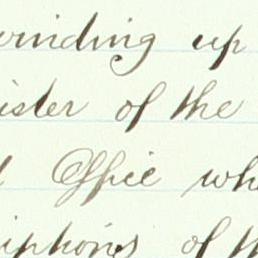 winding up
ister of the
Office wh
iphons of t